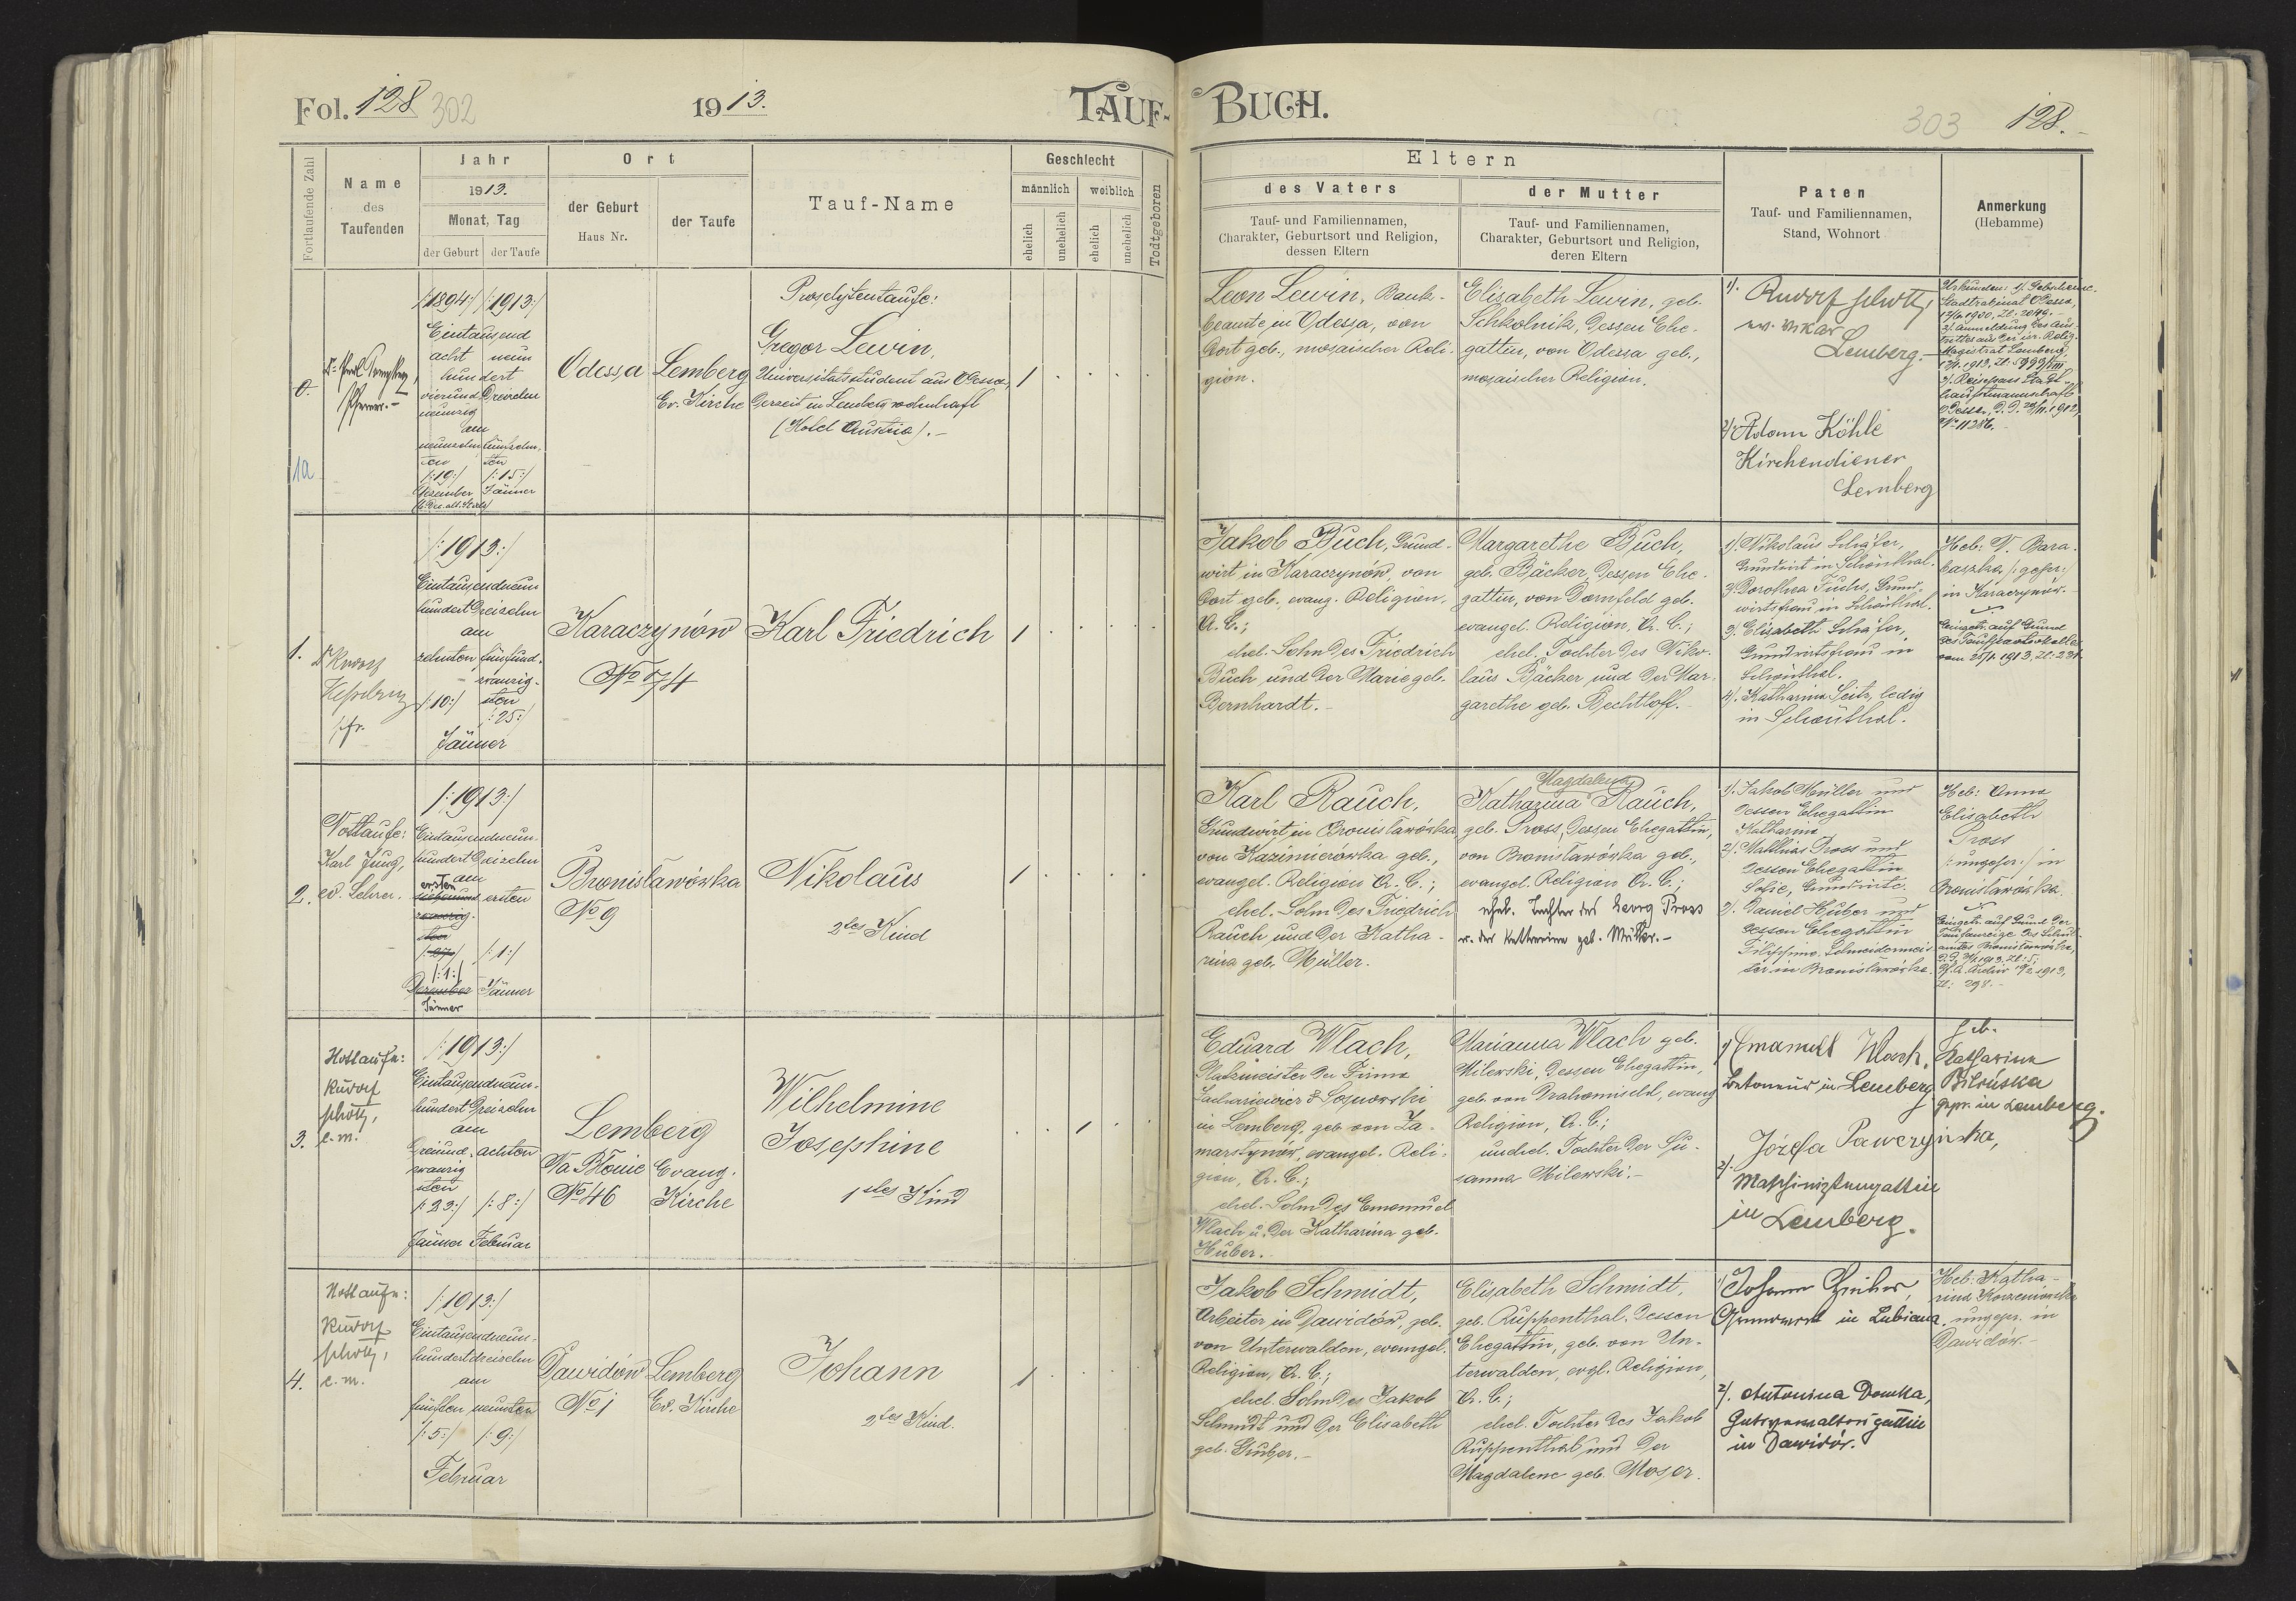 Fol. 128 302
1913.
TAUF-BUCH.
303 128.
Fortlaufende Zahl
Name
des
Taufenden
Jahr
1913.
Monat, Tag
der Geburt der Taufe
Ort
der Geburt
Haus Nr.
der Taufe
Tauf-Name
Geschlecht
männlich weiblich
ehelich unehelich ehelich unehelich
Todtgeboren
Eltern
des Vaters
Tauf- und Familiennamen,
Charakter, Geburtsort und Religion,
dessen Eltern
der Mutter
Tauf- und Familiennamen,
Charakter, Geburtsort und Religion,
deren Eltern
Paten
Tauf- und Familiennamen,
Stand, Wohnort
Anmerkung
(Hebamme)
0.
1a
Pfarrer.-
/:1894:/ /:1913:/
Eintausend
acht neun
hundert
vierund dreizehn
neunzig
am
neunzehn fünfzehn
ten ten
/:19:/ /:15:/
Dezember Jänner
Odessa
Lemberg
Ev. Kirche
Proselytentaufe:
Gregor Lewin,
Universitätsstudent aus Odessa,
derzeit in Lemberg wohnhaft
(Hotel Austria).-
1
Leon Lewin, Bank-
beamte in Odessa, von
dort geb., mosaischer Reli-
gion.
Elisabeth Lewin, geb.
Schkolnik, dessen Ehe-
gattin, von Odessa geb.,
mosaischer Religion.
1). Rudolf Scholtz,
ev. Vikar
Lemberg.
2) Adam Köhle
Kirchendiener
Lemberg
Stadtrabinat Odessa,
Magistrat Lemberg,
No 11286.
1.
/:1913:/
Eintausendneun
hundert dreizehn
am
zehnten fünfund-
zwanzig-
/:10:/ sten
/:25:/
Jänner
Karaczynów
No 74
Karl Friedrich
1
Jakob Buch, Grund-
wirt in Karaczynów, von
dort geb., evang. Religion,
A. C.;
ehel. Sohn des Friedrich
Buch und der Marie geb.
Bernhardt.-
Margarethe Buch,
geb. Bäcker, dessen Ehe-
gattin, von Dornfeld geb.
evangel. Religion, A. C.;
ehel. Tochter des Niko-
laus Bäcker und der Mar-
garethe geb. Bechtloff.-
1). Nikolaus Schäfer,
Grundwirt in Schönthal.
2). Dorothea Fuchs, Grund-
wirtsfrau in Schönthal.
3). Elisabeth Schäfer,
Grundwirtsfrau in
Schönthal.
4). Katharina Seitz, ledig
in Schönthal.
Heb: T. Bara-
baszka /:gepr:/
in Karaczynów.-
Eingetr. auf Grund
des Taufprotokolles
vom 25/1. 1913, Zl: 231.
2.
Nottaufe:
Karl Jung,
ev. Lehrer.
/:1913:/
Eintausendneun-
hundert dreizehn
am
ersten ersten
/:1:/ /:1:/
Dezember Jänner
Jänner
Bronisławówka
No 9
Nikolaus
2tes Kind
1
Karl Rauch,
Grundwirt in Bronisławówka,
von Kazimierówka geb.,
evangel. Religion A. C.;
ehel. Sohn des Friedrich
Rauch und der Katha-
rina geb. Müller.
Magdalena
Katharina Rauch,
geb. Pross, dessen Ehegattin,
von Bronisławówka geb.,
evangel. Religion A. C.;
ehel. Tochter des Georg Pross
u. der Katharina geb. Müller.-
1). Jakob Müller und
dessen Ehegattin
Katharina
2). Mathias Pross und
dessen Ehegattin
Sofie, Grundwirte.
3). Daniel Huber und
dessen Ehegattin
Filippine, Schneidermeis-
ter in Bronisławówka.
Heb: Anna
Elisabeth
Pross
/:ungepr:/ in
Bronisławówka.
Eingetr. auf Grund der
Taufanzeige des Schul-
amtes Bronisławówka,
3.
Nottaufe:
Rudolf
Scholtz,
c. m.
/:1913:/
Eintausendneun-
hundert dreizehn
am
dreiund- achten
zwanzig
sten
/:23:/ /:8:/
Jänner Februar
Lemberg
Na Błonie
No 46
Evang.
Kirche
Wilhelmine
Josephine
1stes Kind
1
Eduard Wlach,
Platzmeister der Firma
Zachariewicz & Sosnowski
in Lemberg, geb. von Za-
marstynów, evangel. Reli-
gion, A. C.;
ehel. Sohn des Emanuel
Wlach u. der Katharina geb.
Huber.
Marianna Wlach geb.
Milewski, dessen Ehegattin,
geb. von Drahomischl, evang.
Religion, A. C.;
unehel. Tochter der Su-
sanna Milewski.-
1) Emanuel Wlach,
Betoneur in Lemberg
2). Józefa Pawezyńska,
Maschinistengattin
in Lemberg.
Heb.
Katharina
Bilińska
gepr. in Lemberg.
4.
Nottaufe:
Rudolf
Scholtz,
c. m.
/:1913:/
Eintausendneun-
hundert dreizehn
am
fünften neunten
/:5:/ /:9:/
Februar
Dawidów
No 1
Lemberg
Ev. Kirche
Johann
2tes Kind.
1
Jakob Schmidt,
Arbeiter in Dawidów, geb.
von Unterwalden, evangel.
Religion, A. C.;
ehel. Sohn des Jakob
Schmidt und der Elisabeth
geb. Gruber.-
Elisabeth Schmidt,
geb. Ruppenthal, dessen
Ehegattin, geb. von Un-
terwalden, evgl. Religion,
A. C.;
ehel. Tochter des Jakob
Ruppenthal und der
Magdalene geb. Moser.
1) Johann
Grundwirt in Lubiana
2). Antonina Domka,
Gutsverwaltersgattin
in Dawidów.
Heb: Katha-
rina Korzeniowska
ungepr. in
Dawidów.-